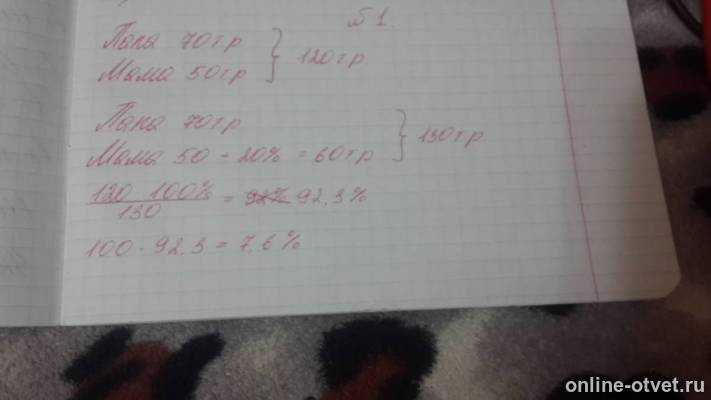 №1.
Папа 70т.р } 120т.р.
Мама 50тр
Папа 70т.р } 130т.р.
Мама 50 + 20% = 60тр
120 100% / 130 = 92,3%
100 - 92,3 = 7,6%
online-otvet.ru